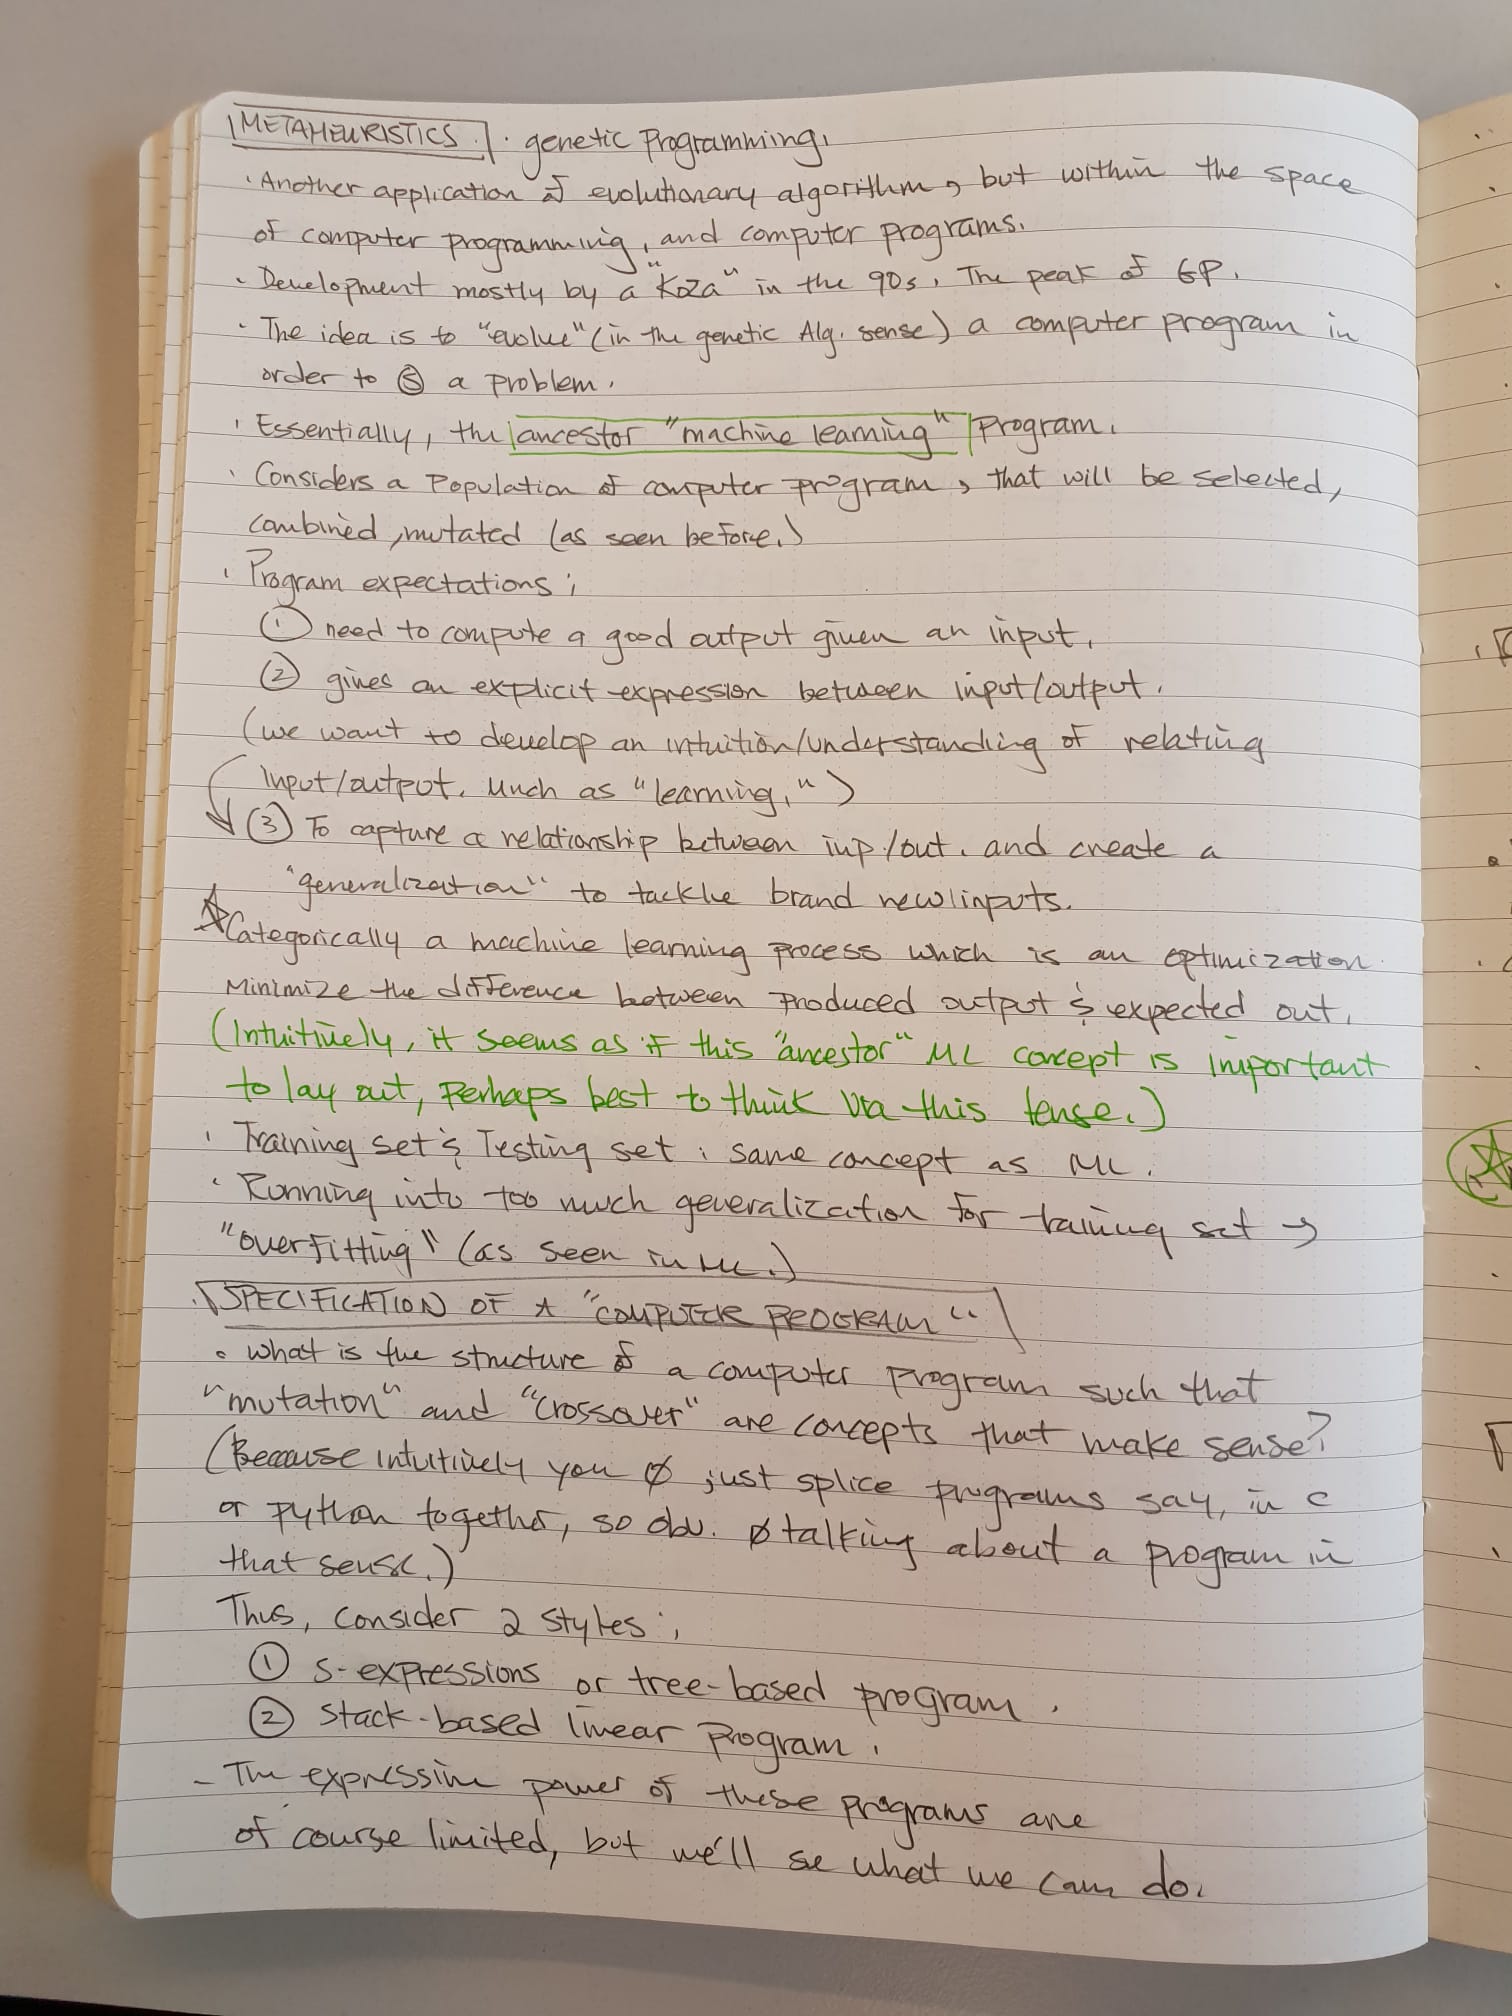 METAHEURISTICS. · genetic Programming.
· Another application of evolutionary algorithm, but within the space
of computer programming, and computer programs.
- Development mostly by a "Koza" in the 90s. The peak of GP.
- The idea is to "evolve" (in the genetic Alg. sense) a computer program in
order to Ⓢ a problem.
· Essentially, the ancestor "machine learning" program.
· Considers a Population of computer program, that will be selected,
combined, mutated (as seen before.)
· Program expectations:
① need to compute a good output given an input.
② gives an explicit expression between input/output.
(we want to develop an intuition/understanding of relating
input/output. Much as "learning.")
③ To capture a relationship between inp./out. and create a
"generalization" to tackle brand new inputs.
☆ Categorically a machine learning process which is an optimization.
Minimize the difference between produced output & expected out.
(Intuitively, it seems as if this "ancestor" ML concept is important
to lay out, perhaps best to think via this tense.)
· Training set & Testing set: same concept as ML.
· Running into too much generalization for training set →
"overfitting" (as seen in ML.)
SPECIFICATION OF A "COMPUTER PROGRAM"
· what is the structure of a computer program such that
"mutation" and "crossover" are concepts that make sense?
(Because intuitively you Ø just splice programs say, in C
or python together, so obv. Ø talking about a program in
that sense.)
Thus, consider 2 styles:
① S-expressions or tree-based program.
② Stack-based linear program.
- The expressive power of these programs are
of course limited, but we'll se what we can do.